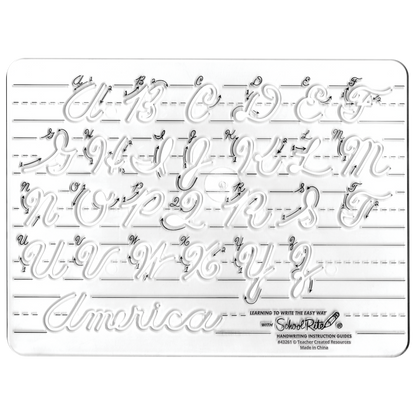 A B C D E F
G H I J K L M
N O P Q R S T
U V W X Y Z
America
LEARNING TO WRITE THE EASY WAY
WITH SchoolRite
HANDWRITING INSTRUCTION GUIDES
© Teacher Created Resources
Made in China